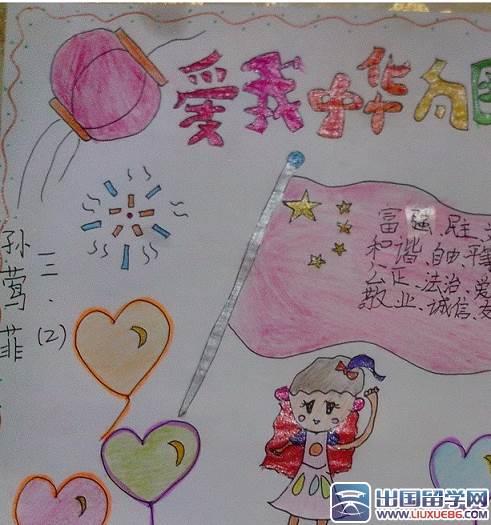 爱我中华为国
富强、民主、文
和谐、自由、平等
公正、法治、爱
敬业、诚信、友
孙莺菲
三.(2)
出国留学网
WWW.LIUXUE86.COM